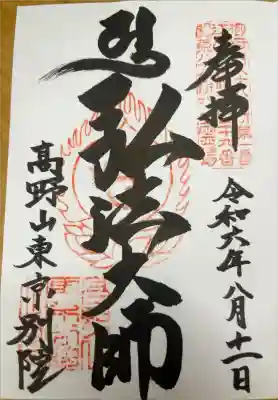 奉拝
令和六年八月十一日
遍
弘法大師
高野山東京別院